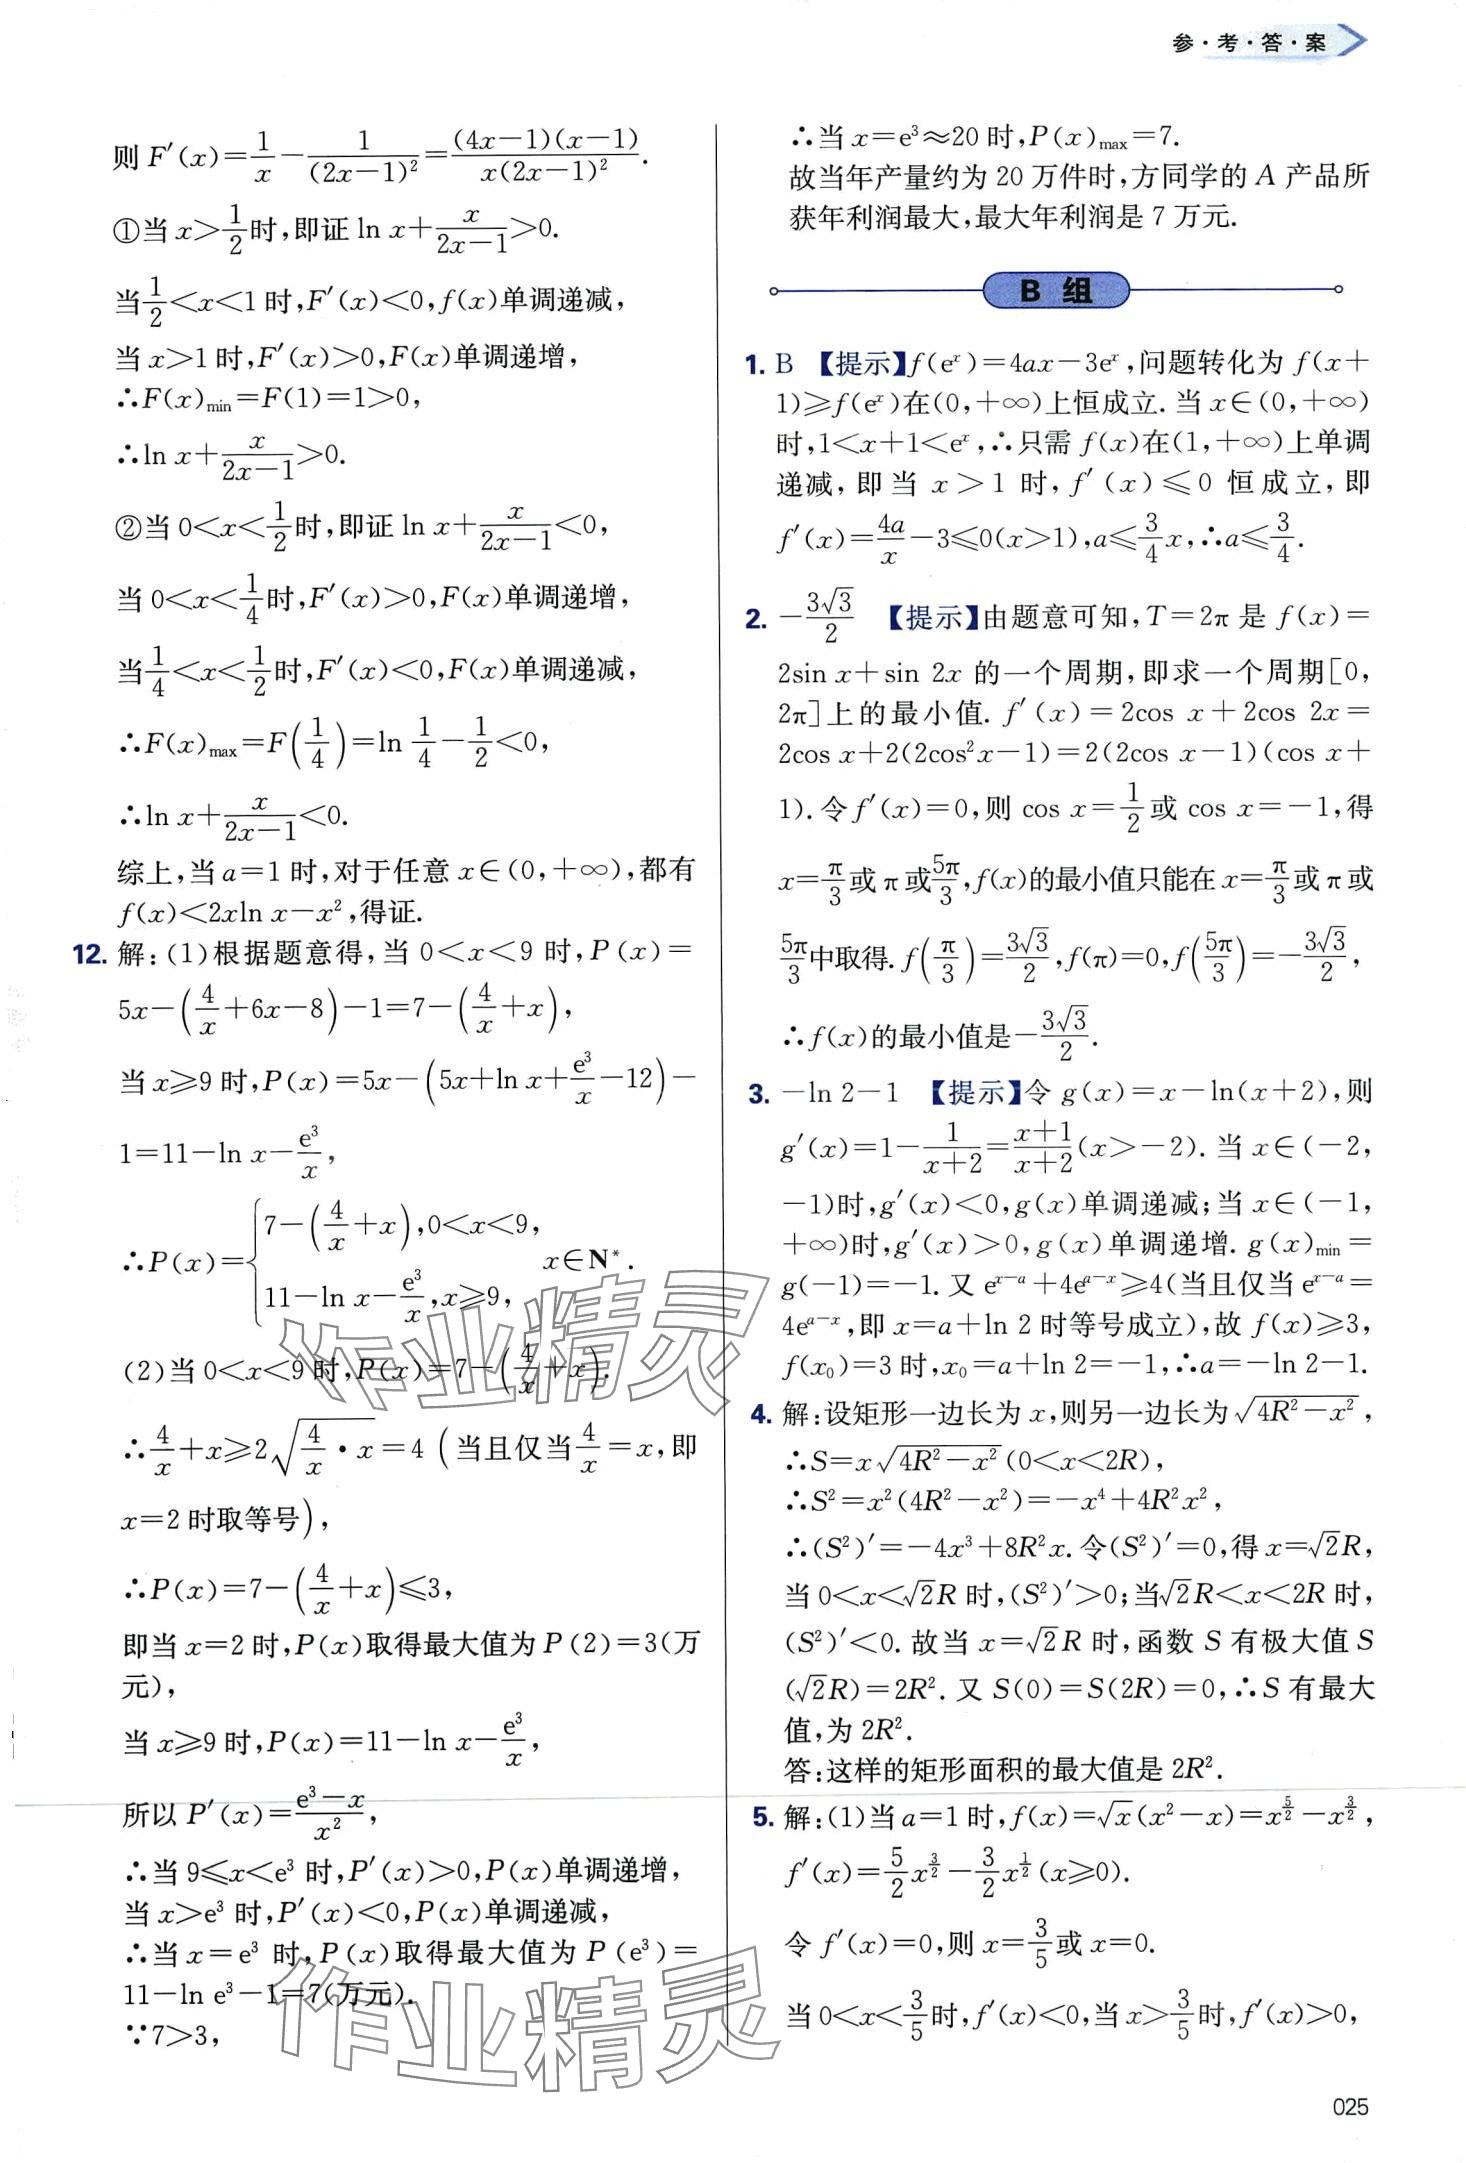 参·考·答·案
则 F′(x)=1/x−1/(2x−1)²=(4x−1)(x−1)/x(2x−1)².
①当 x>1/2时,即证 ln x+x/(2x−1)>0.
当1/2<x<1 时,F′(x)<0,f(x)单调递减,
当 x>1 时,F′(x)>0,F(x)单调递增,
∴F(x)min=F(1)=1>0,
∴ln x+x/(2x−1)>0.
②当 0<x<1/2时,即证 ln x+x/(2x−1)<0,
当 0<x<1/4时,F′(x)>0,F(x)单调递增,
当1/4<x<1/2时,F′(x)<0,F(x)单调递减,
∴F(x)max=F(1/4)=ln 1/4−1/2<0,
∴ln x+x/(2x−1)<0.
综上,当 a=1 时,对于任意 x∈(0,+∞),都有
f(x)<2xln x−x²,得证.
12. 解:(1)根据题意得,当 0<x<9 时,P(x)=
5x−(4/x+6x−8)−1=7−(4/x+x),
当 x≥9 时,P(x)=5x−(5x+ln x+e³/x−12)−
1=11−ln x−e³/x,
∴P(x)={7−(4/x+x),0<x<9,
11−ln x−e³/x,x≥9, x∈N*.
(2)当 0<x<9 时,P(x)=7−(4/x+x).
∴4/x+x≥2√(4/x·x)=4(当且仅当4/x=x,即
x=2 时取等号),
∴P(x)=7−(4/x+x)≤3,
即当 x=2 时,P(x)取得最大值为 P(2)=3(万
元),
当 x≥9 时,P(x)=11−ln x−e³/x,
所以 P′(x)=(e³−x)/x²,
∴当 9≤x<e³ 时,P′(x)>0,P(x)单调递增,
当 x>e³ 时,P′(x)<0,P(x)单调递减,
∴当 x=e³ 时,P(x)取得最大值为 P(e³)=
11−ln e³−1=7(万元).
∵7>3,
∴当 x=e³≈20 时,P(x)max=7.
故当年产量约为 20 万件时,方同学的 A 产品所
获年利润最大,最大年利润是 7 万元.
B 组
1. B 【提示】f(eˣ)=4ax−3eˣ,问题转化为 f(x+
1)≥f(eˣ)在(0,+∞)上恒成立. 当 x∈(0,+∞)
时,1<x+1<eˣ,∴只需 f(x)在(1,+∞)上单调
递减,即当 x>1 时,f′(x)≤0 恒成立,即
f′(x)=4a/x−3≤0(x>1),a≤3/4x,∴a≤3/4.
2. −3√3/2 【提示】由题意可知,T=2π 是 f(x)=
2sin x+sin 2x 的一个周期,即求一个周期[0,
2π]上的最小值. f′(x)=2cos x+2cos 2x=
2cos x+2(2cos²x−1)=2(2cos x−1)(cos x+
1). 令 f′(x)=0,则 cos x=1/2或 cos x=−1,得
x=π/3或 π 或5π/3,f(x)的最小值只能在 x=π/3或 π 或
5π/3中取得. f(π/3)=3√3/2,f(π)=0,f(5π/3)=−3√3/2,
∴f(x)的最小值是−3√3/2.
3. −ln 2−1 【提示】令 g(x)=x−ln(x+2),则
g′(x)=1−1/(x+2)=(x+1)/(x+2)(x>−2). 当 x∈(−2,
−1)时,g′(x)<0,g(x)单调递减;当 x∈(−1,
+∞)时,g′(x)>0,g(x)单调递增. g(x)min=
g(−1)=−1. 又 eˣ⁻ᵃ+4eᵃ⁻ˣ≥4(当且仅当 eˣ⁻ᵃ=
4eᵃ⁻ˣ,即 x=a+ln 2 时等号成立),故 f(x)≥3,
f(x₀)=3 时,x₀=a+ln 2=−1,∴a=−ln 2−1.
4. 解:设矩形一边长为 x,则另一边长为√(4R²−x²),
∴S=x√(4R²−x²)(0<x<2R),
∴S²=x²(4R²−x²)=−x⁴+4R²x²,
∴(S²)′=−4x³+8R²x. 令(S²)′=0,得 x=√2R,
当 0<x<√2R 时,(S²)′>0;当√2R<x<2R 时,
(S²)′<0. 故当 x=√2R 时,函数 S 有极大值 S
(√2R)=2R². 又 S(0)=S(2R)=0,∴S 有最大
值,为 2R².
答:这样的矩形面积的最大值是 2R².
5. 解:(1)当 a=1 时,f(x)=√x(x²−x)=x^(5/2)−x^(3/2),
f′(x)=5/2x^(3/2)−3/2x^(1/2)(x≥0).
令 f′(x)=0,则 x=3/5或 x=0.
当 0<x<3/5时,f′(x)<0,当 x>3/5时,f′(x)>0,
025
作业精灵
作业精灵